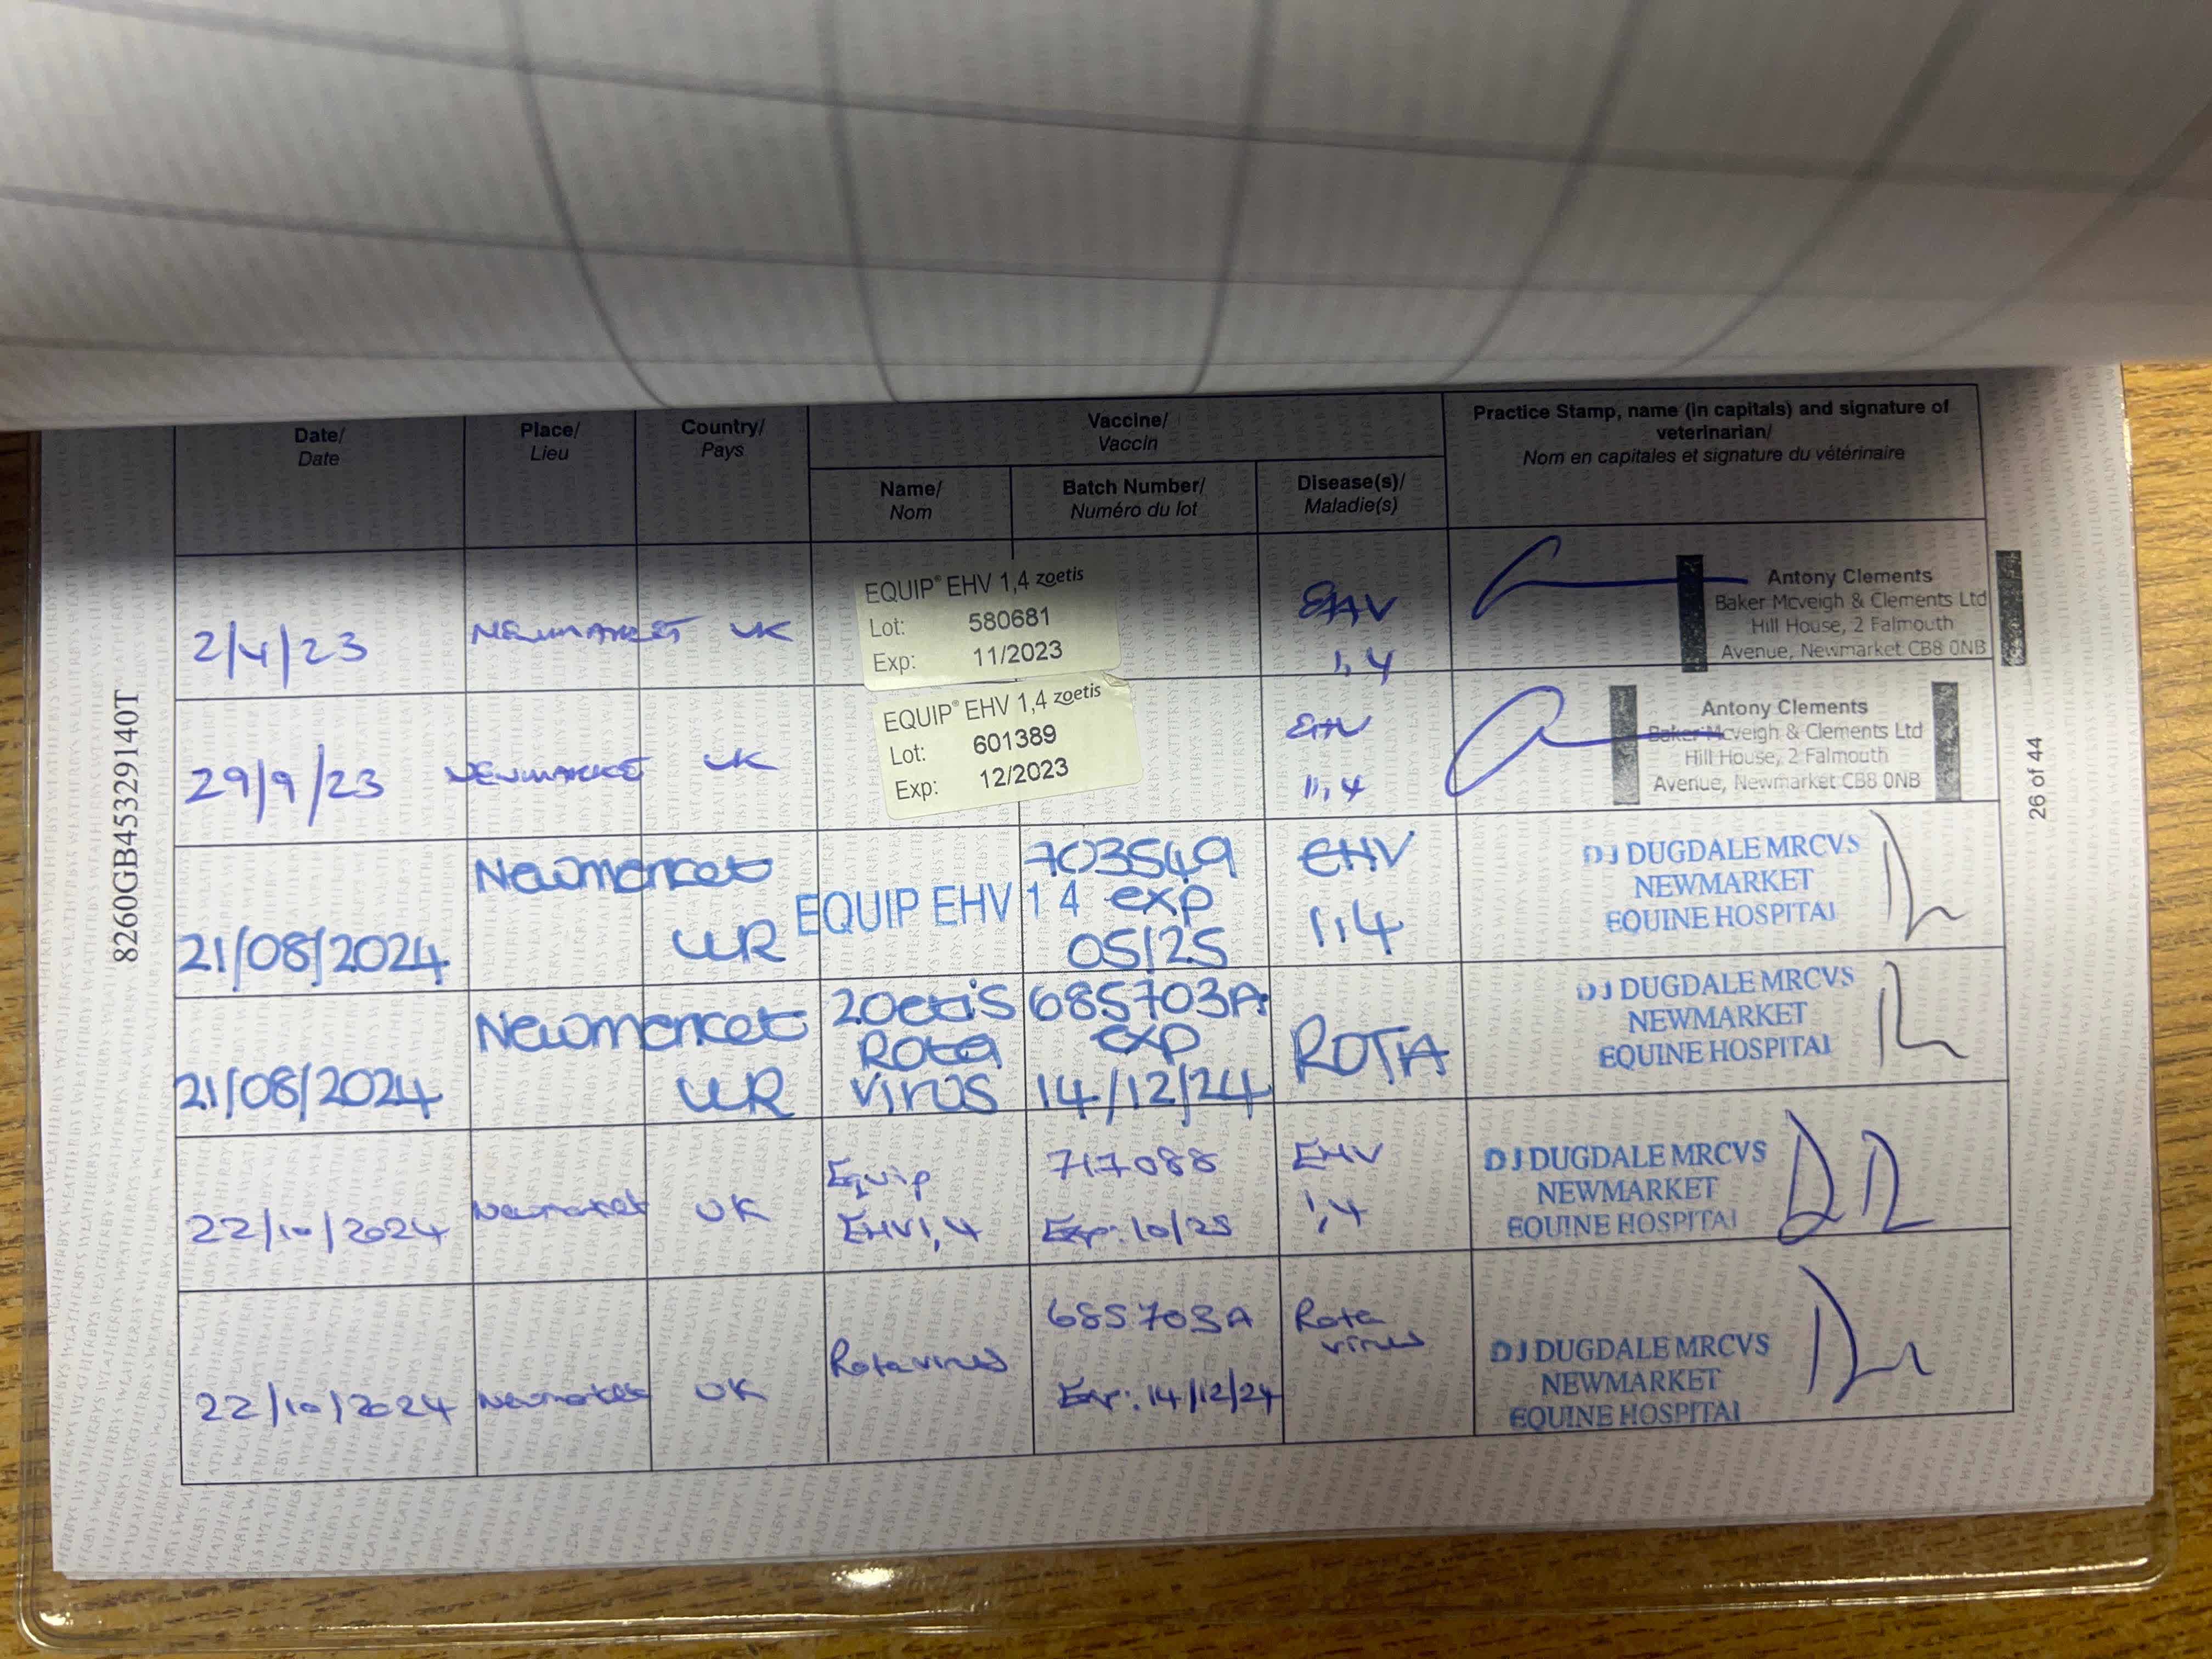 Date/
Date
Place/
Lieu
Country/
Pays
Vaccine/
Vaccin
Practice Stamp, name (in capitals) and signature of
veterinarian/
Nom en capitales et signature du vétérinaire
Name/
Nom
Batch Number/
Numéro du lot
Disease(s)/
Maladie(s)
2/4/23
NEWMARKET
UK
EQUIP® EHV 1,4 zoetis
Lot: 580681
Exp: 11/2023
EHV
1,4
Antony Clements
Baker Mcveigh & Clements Ltd
Hill House, 2 Falmouth
Avenue, Newmarket CB8 0NB
29/9/23
NEWMARKET
UK
EQUIP® EHV 1,4 zoetis
Lot: 601389
Exp: 12/2023
EHV
1,4
Antony Clements
Baker Mcveigh & Clements Ltd
Hill House, 2 Falmouth
Avenue, Newmarket CB8 0NB
21/08/2024
Newmarket
UK
EQUIP EHV 1 4
703549
exp
05/25
EHV
1,4
DJ DUGDALE MRCVS
NEWMARKET
EQUINE HOSPITAL
21/08/2024
Newmarket
UK
Zoetis
Rota
virus
685703A
exp
14/12/24
ROTA
DJ DUGDALE MRCVS
NEWMARKET
EQUINE HOSPITAL
22/10/2024
Newmarket
UK
Equip
EHV1,4
717088
Exp: 10/25
EHV
1,4
DJ DUGDALE MRCVS
NEWMARKET
EQUINE HOSPITAL
22/10/2024
Newmarket
UK
Rotavirus
685703A
Exp: 14/12/24
Rota
virus
DJ DUGDALE MRCVS
NEWMARKET
EQUINE HOSPITAL
8260GB45329140T
26 of 44